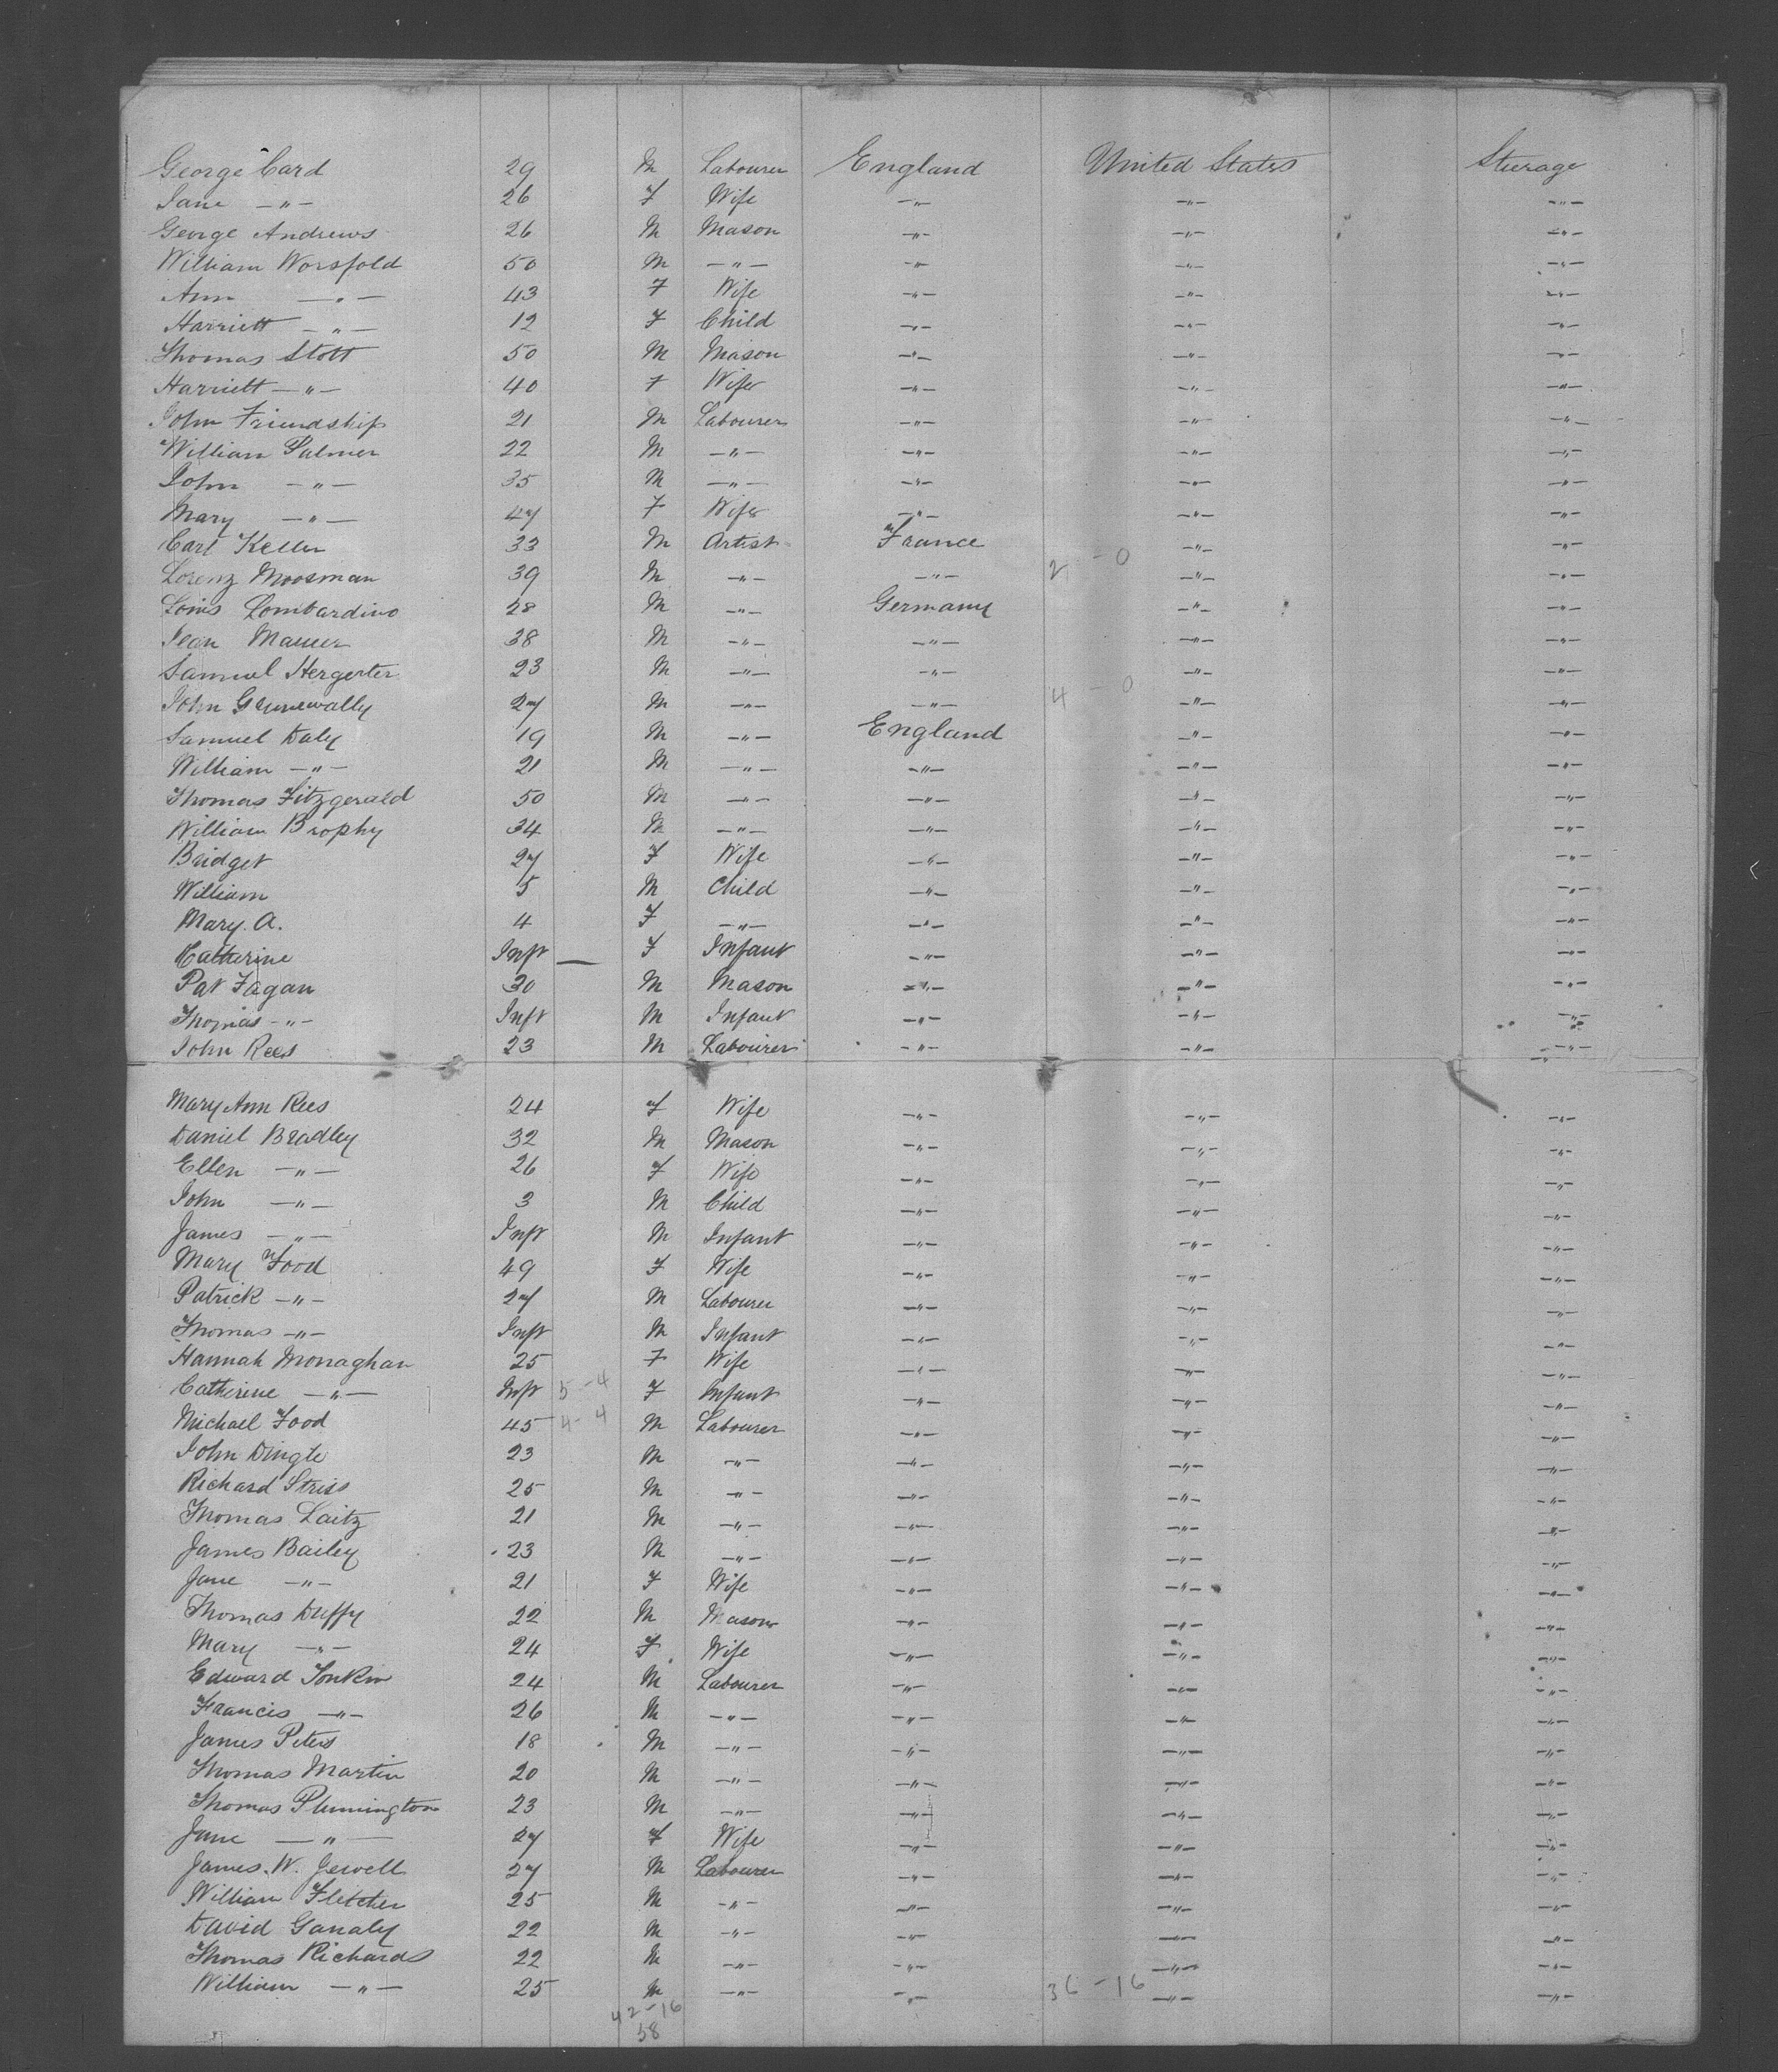 George Card 29 M Labourer England United States Sturage
Jane —"— 26 F Wife —"— —"— —"—
George Andrews 26 M Mason —"— —"— —"—
William Worsfold 50 M —"— —"— —"— —"—
Ann —"— 43 F Wife —"— —"— —"—
Harriett —"— 12 F Child —"— —"— —"—
Thomas Stott 50 M Mason —"— —"— —"—
Harriett —"— 40 F Wife —"— —"— —"—
John Friendship 21 M Labourer —"— —"— —"—
William Palmer 22 M —"— —"— —"— —"—
John —"— 35 M —"— —"— —"— —"—
Mary —"— 47 F Wife —"— —"— —"—
Carl Keller 33 M Artist France —"— —"—
Lorenz Moosman 39 M —"— —"— 2 - 0 —"— —"—
Louis Lombardino 28 M —"— Germany —"— —"—
Jean Maurer 38 M —"— —"— —"— —"—
Samuel Hergerter 23 M —"— —"— —"— —"—
John Grunewally 27 M —"— —"— 4 - 0 —"— —"—
Samuel Daly 19 M —"— England —"— —"—
William —"— 21 M —"— —"— —"— —"—
Thomas Fitzgerald 50 M —"— —"— —"— —"—
William Brophy 34 M —"— —"— —"— —"—
Bridget 27 F Wife —"— —"— —"—
William 5 M Child —"— —"— —"—
Mary. A. 4 F —"— —"— —"— —"—
Catherine Inft — F Infant —"— —"— —"—
Pat Fagan 30 M Mason —"— —"— —"—
Thomas —"— Inft M Infant —"— —"— —"—
John Rees 23 M Labourer —"— —"— —"—
Mary Ann Rees 24 F Wife —"— —"— —"—
Daniel Bradley 32 M Mason —"— —"— —"—
Ellen —"— 26 F Wife —"— —"— —"—
John —"— 3 M Child —"— —"— —"—
James —"— Inft M Infant —"— —"— —"—
Mary Food 49 F Wife —"— —"— —"—
Patrick —"— 27 M Labourer —"— —"— —"—
Thomas —"— Inft M Infant —"— —"— —"—
Hannah Monaghan 25 F Wife —"— —"— —"—
Catherine —"— Inft 5 - 4 F Infant —"— —"— —"—
Michael Food 45 4 - 4 M Labourer —"— —"— —"—
John Dingle 23 M —"— —"— —"— —"—
Richard Striss 25 M —"— —"— —"— —"—
Thomas Laitz 21 M —"— —"— —"— —"—
James Bailey 23 M —"— —"— —"— —"—
Jane —"— 21 F Wife —"— —"— —"—
Thomas Duffy 22 M Mason —"— —"— —"—
Mary —"— 24 F Wife —"— —"— —"—
Edward Tonkin 24 M Labourer —"— —"— —"—
Francis —"— 26 M —"— —"— —"— —"—
James Peters 18 M —"— —"— —"— —"—
Thomas Martin 20 M —"— —"— —"— —"—
Thomas Plumington 23 M —"— —"— —"— —"—
Jane —"— 27 F Wife —"— —"— —"—
James. W. Jewell 27 M Labourer —"— —"— —"—
William Fletcher 25 M —"— —"— —"— —"—
David Ganaly 22 M —"— —"— —"— —"—
Thomas Richards 22 M —"— —"— —"— —"—
William —"— 25 M —"— —"— 36 - 16 —"— —"—
42 - 16
58